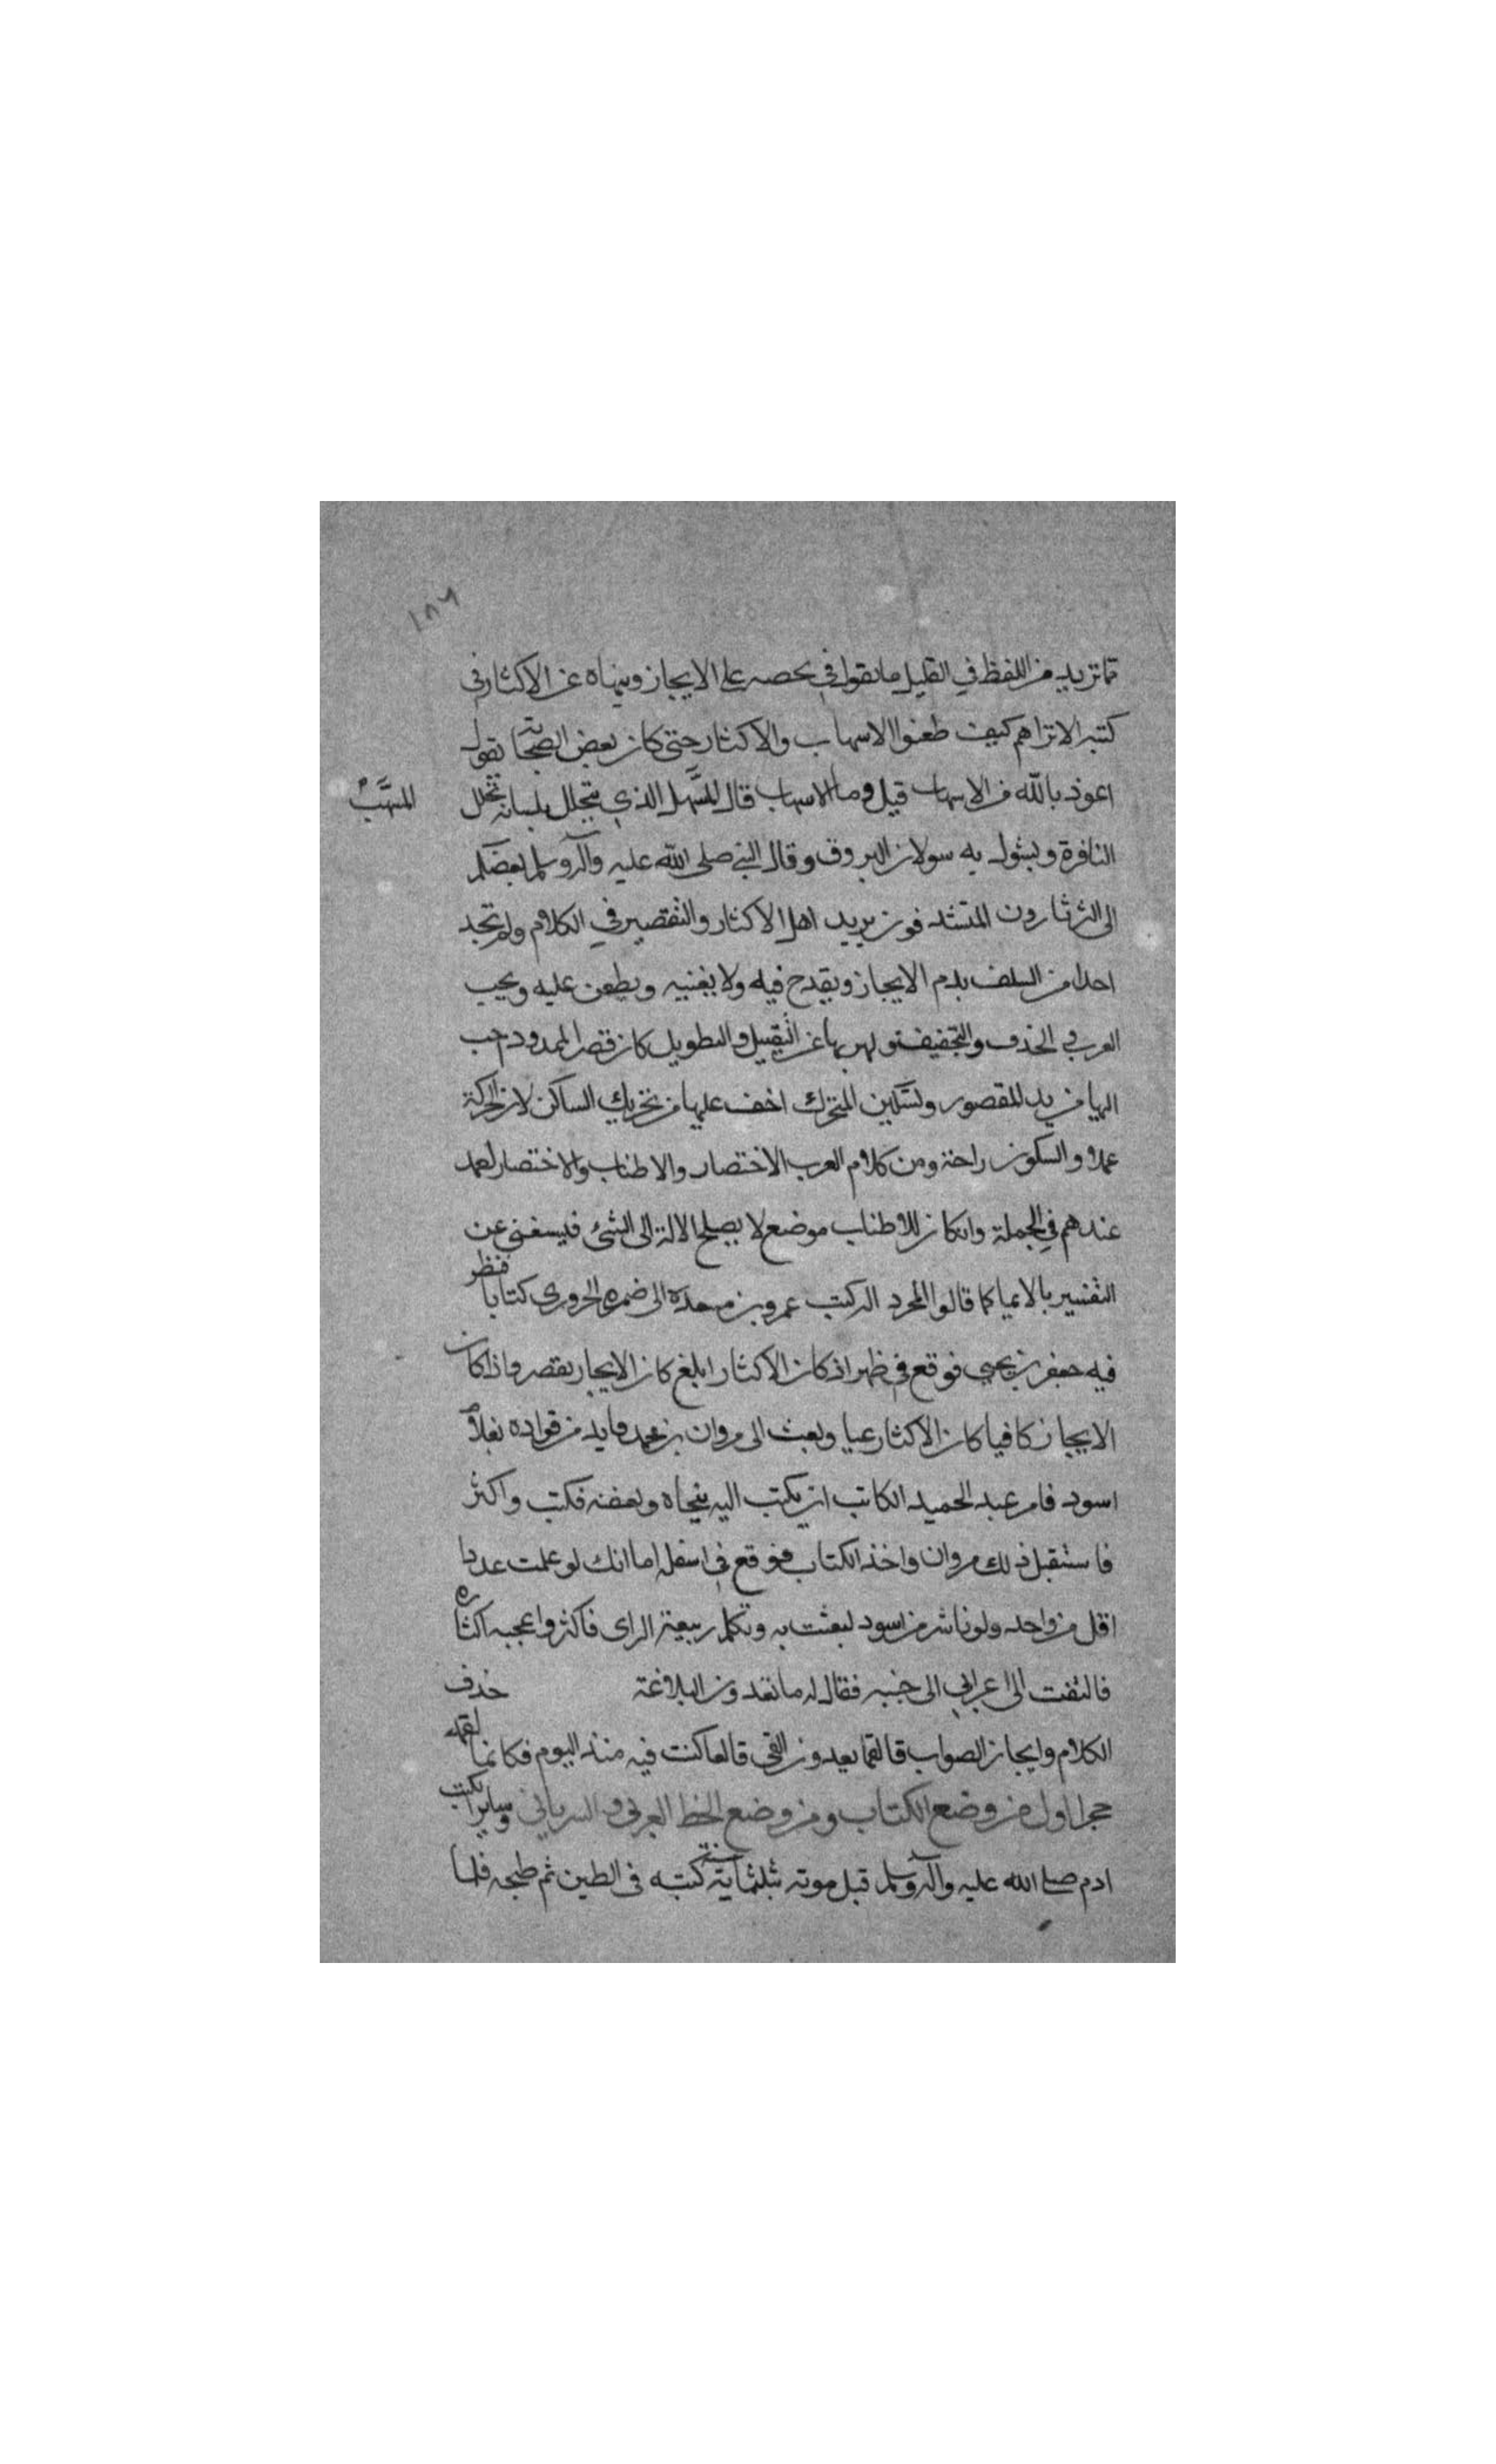 ١٨٦
تما تزيد من اللفظ في القليل مما تقول في يحصه على الايجاز وينهاه عن الاكثار في
كتبه الا تراهم كيف طعنوا الاسهاب والاكثار حتى كان بعض الصحابة يقول
اعوذ بالله من الاسهاب قيل وما الاسهاب قال المسهل الذي يتخلل بلسانه تخلل
المسهب
النافرة ويشول به سولان البروق وقال النبي صلى الله عليه وآله وسلم بعضكم
الى الثرثارون المتشدقون يريد اهل الاكثار والتقصير في الكلام ولم تجد
احدا من السلف يدم الايجاز ويقدح فيه ولا يغنيه ويطعن عليه ويحب
العرب في الحذف والتخفيف ولهربها عن الثقيل والتطويل كان قصر الممدود احب
اليها من يد المقصور وتسكين المتحرك اخف عليها من تحريك الساكن لان الحركة
عملا والسكون راحة ومن كلام العرب الاختصار والاطناب والاختصار لعمد
عندهم في الجملة وان كان للاطناب موضع لا يصلح الا له الى الشئ فيستغنى عن
التفسير بالايميا كما قالوا المحرد الد كتب عمرو بن مسعدة الى ضمره الحروري كتابا فنظر
فيه جعفر بن يحيى فوقع في ظهر اذ كان الاكثار ابلغ كان الايجار يقصر واذا كان
الايجاز كافيا كان الاكثار عيا وبعث الى مروان بن محمد فايد من قواده بغلام
اسود فامر عبد الحميد الكاتب ان يكتب اليه بنجاه وبعضه فكتب واكثر
فاستقبل ذلك مروان واخذ الكتاب فوقع في اسفله اما انك لو علمت عددا
اقل من واحد ولونا شر من اسود لبعثت به وتكلم ربيعة الراى فاكثر واعجبه اكثاره
فالتفت الى اعرابي الى جنبه فقال له ما تعدون البلاغة حذف
الكلام وايجاز الصواب قال فما يعدون العي قال ما كنت فيه منذ اليوم فكانما لقمه
حجرا اول من وضع الكتاب ومن وضع الخط العربي والسرياني وساير الكتب
ادم صلى الله عليه وآله وسلم قبل موته بثلثماية سنة كتبه في الطين ثم طبخه فلما